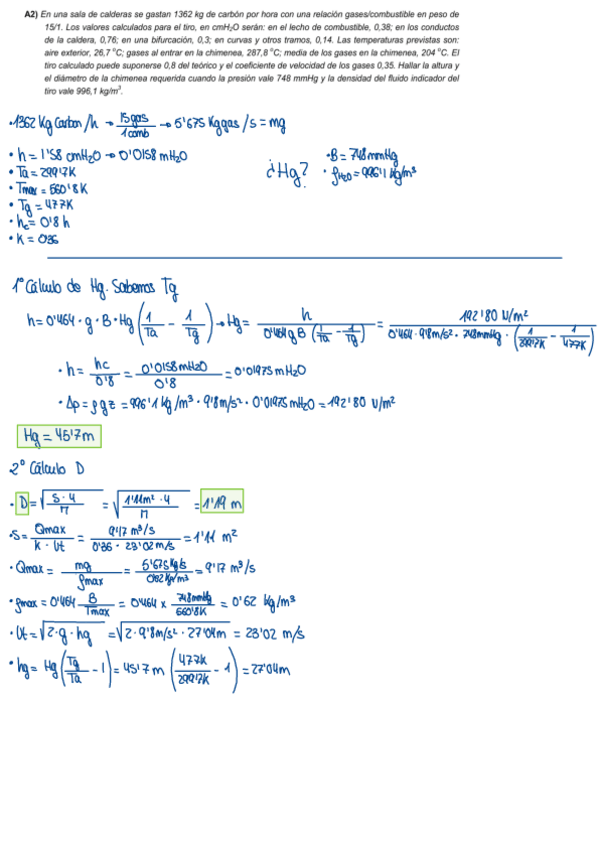 A2) En una sala de calderas se gastan 1362 kg de carbón por hora con una relación gases/combustible en peso de
15/1. Los valores calculados para el tiro, en cmH₂O serán: en el lecho de combustible, 0,38; en los conductos
de la caldera, 0,76; en una bifurcación, 0,3; en curvas y otros tramos, 0,14. Las temperaturas previstas son:
aire exterior, 26,7 °C; gases al entrar en la chimenea, 287,8 °C; media de los gases en la chimenea, 204 °C. El
tiro calculado puede suponerse 0,8 del teórico y el coeficiente de velocidad de los gases 0,35. Hallar la altura y
el diámetro de la chimenea requerida cuando la presión vale 748 mmHg y la densidad del fluido indicador del
tiro vale 996,1 kg/m³.
·1362 Kg Carbon/h → 15 gas / 1 comb → 5'675 Kg gas /s = mg
· h = 1'58 cmH₂O → 0'0158 mH₂O
· Ta = 299'7K
· Tmax = 560'8K
· Tg = 477K
· hc = 0'8 h
· K = 0'35
¿Hg?
· B = 748 mmHg
· ρH₂O = 996'1 kg/m³
1° Cálculo de Hg. Sabemos Tg
h = 0'464 · g · B · Hg (1/Ta − 1/Tg) → Hg = h / (0'464 g B (1/Ta − 1/Tg)) = 192'80 N/m² / (0'464 · 9'8 m/s² · 748mmHg · (1/299'7K − 1/477K))
· h = hc / 0'8 = 0'0158 mH₂O / 0'8 = 0'01975 mH₂O
· Δp = ρ g z = 996'1 kg/m³ · 9'8 m/s² · 0'01975 mH₂O = 192'80 N/m²
Hg = 45'7 m
2° Cálculo D
· D = √(S · 4 / π) = √(1'11 m² · 4 / π) = 1'19 m
·S = Qmax / (K · Ut) = 9'17 m³/s / (0'35 · 23'02 m/s) = 1'11 m²
· Qmax = mg / ρmax = 5'675 Kg/s / 0'62 Kg/m³ = 9'17 m³/s
· ρmax = 0'464 B / Tmax = 0'464 × 748mmHg / 560'8K = 0'62 kg/m³
· Ut = √(2 · g · hg) = √(2 · 9'8 m/s² · 27'04m) = 23'02 m/s
· hg = Hg (Tg/Ta − 1) = 45'7 m (477K / 299'7K − 1) = 27'04m